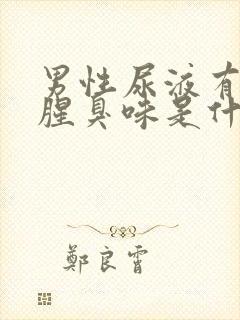 男性尿液有
腥臭味是什
鄭良霄